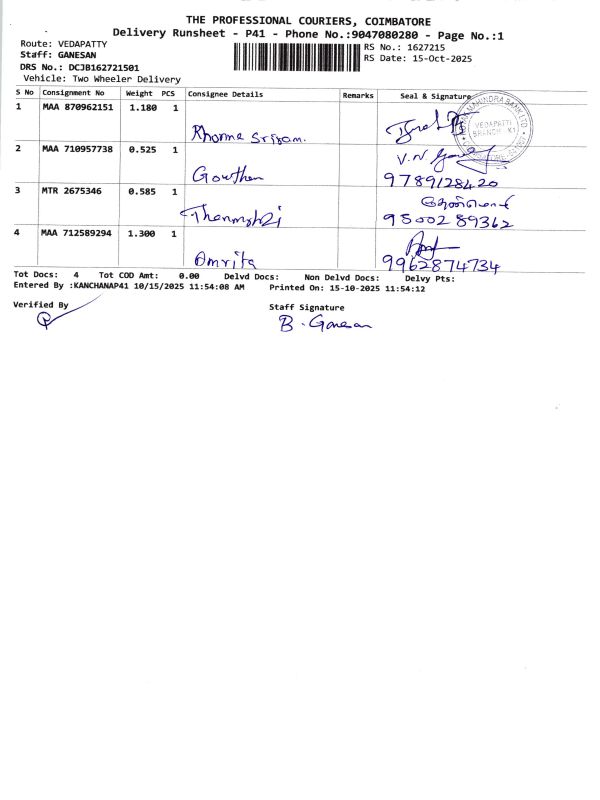 THE PROFESSIONAL COURIERS, COIMBATORE
Delivery Runsheet - P41 - Phone No.:9047080280 - Page No.:1
Route: VEDAPATTY
Staff: GANESAN
DRS No.: DCJB162721501
Vehicle: Two Wheeler Delivery
RS No.: 1627215
RS Date: 15-Oct-2025
S No Consignment No Weight PCS Consignee Details Remarks Seal & Signature
1 MAA 870962151 1.180 1
VEDAPATTI
BRANCH
2 MAA 710957738 0.525 1
Gowthan V.N
9789128420
3 MTR 2675346 0.585 1
95002 89362
4 MAA 712589294 1.300 1
Amrita
9962874734
Tot Docs: 4 Tot COD Amt: 0.00 Delvd Docs: Non Delvd Docs: Delvy Pts:
Entered By :KANCHANAP41 10/15/2025 11:54:08 AM Printed On: 15-10-2025 11:54:12
Verified By
Staff Signature
B. Ganesan